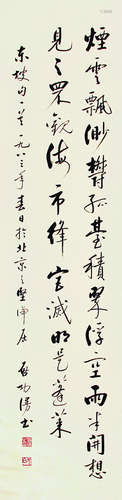 煙雲飄渺鬱孤臺積翠浮空雨半開想
見之罘觀海市絳宮滅明是蓬萊
東坡句一首一九八三年春日於北京之堅净居
啓功書